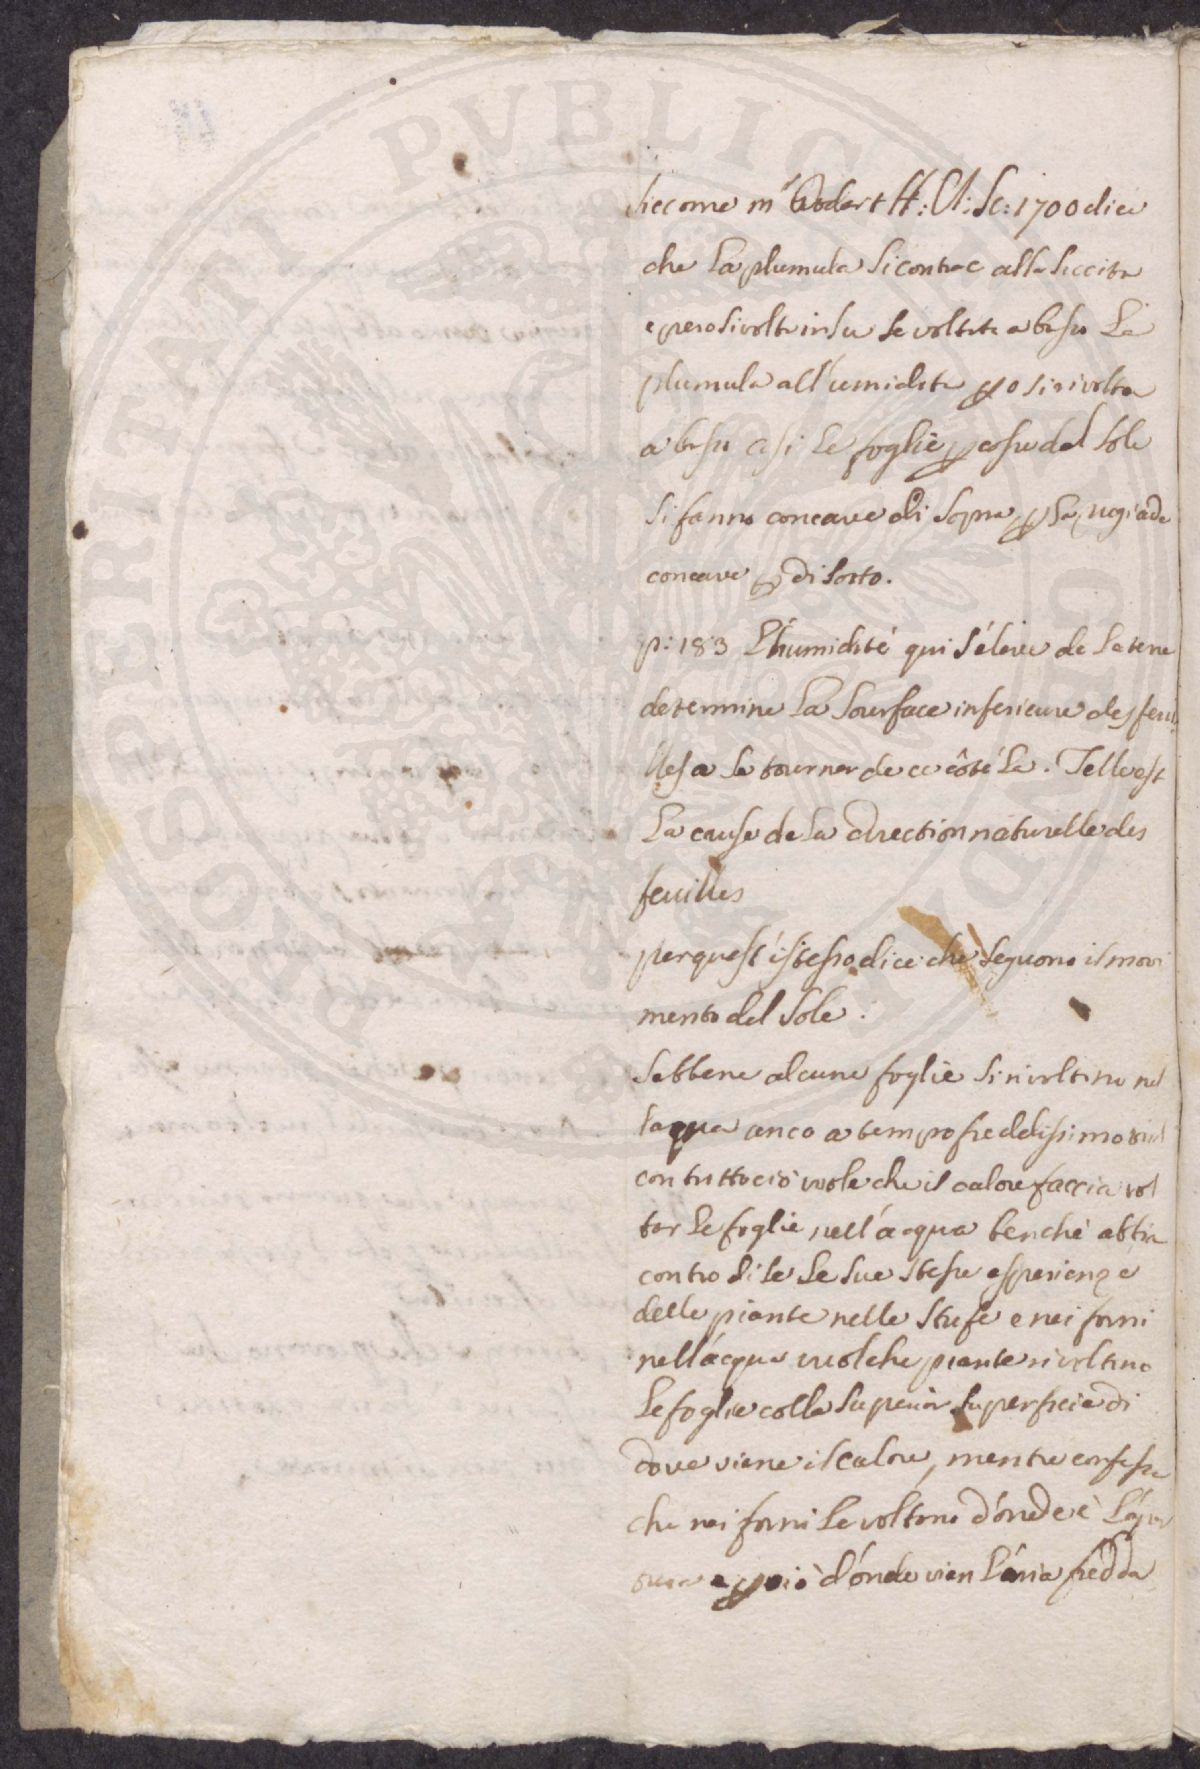 siccome mr Dodart H: A: Sc: 1700 dice
che la plumula si contrae alla siccita
e pero si volta in su se voltata a basso La
plumula all'umidita pero si rivolta
a basso cosi le foglie percosse dal sole
si fanno concave di sopra, per la rugiada
concave di sotto.
p: 183 L'humidité qui s'éleve de la terre
determine La sourface inferieure des feui
lles a se tourner de ce côté la. Telle est
La cause de la direction naturelle des
feuilles
per quest'istesso dice che seguono il movi
mento del sole.
Sebbene alcune foglie si rivoltino nel
laqua anco a tempo freddissimo
con tuttociò vuole che il calore faccia vol
tar le foglie nell'acqua benchè abbia
contro di se le sue stesse esperienze
delle piante nelle stufe e nei forni
nell'acqua vuol che piante rivoltino
Le foglie colla superior superficie di
dove viene il calore, mentre confessa
che nei forni le voltono d'onde è l'aper
tura e perciò d'onde vien l'aria fredda
PROSPERITATI PVBLICAE